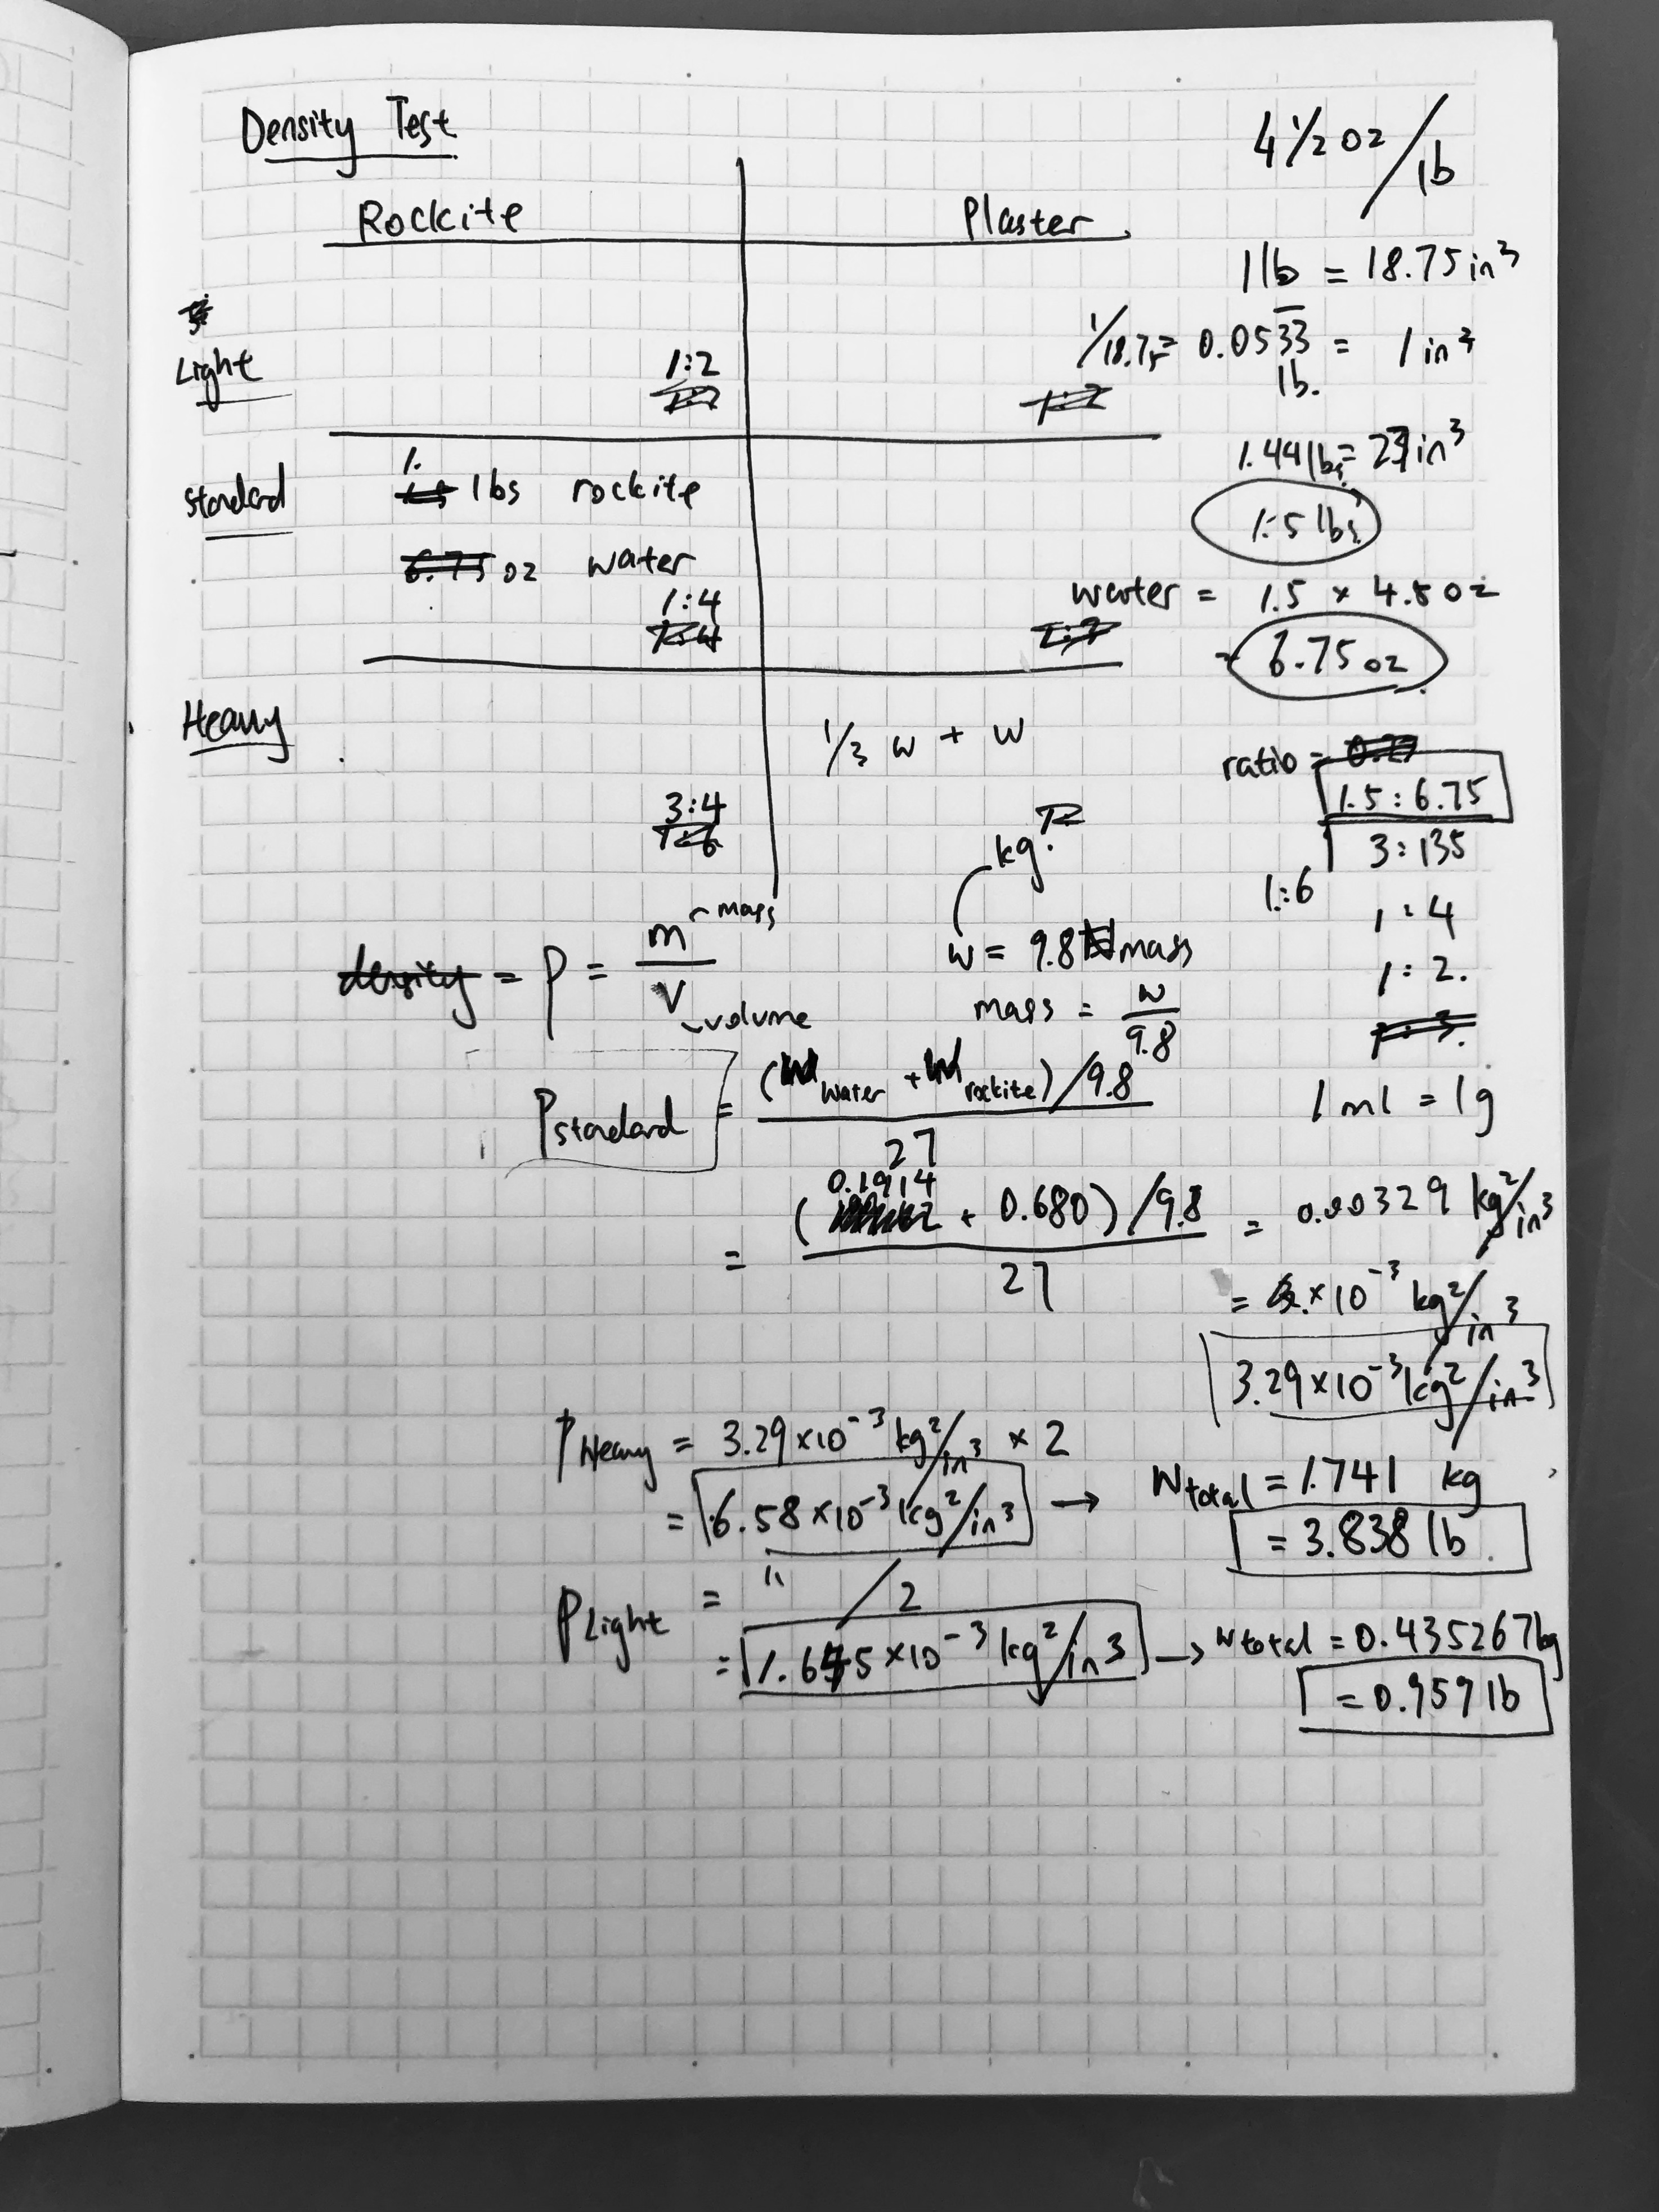 Density Test
4 1/2 oz/lb
Rockite
Plaster
1 lb = 18.75 in³
1/18.75 = 0.0533 lb. = 1 in³
Light
1:2
1:2
1.44 lbs = 27 in³
1.5 lbs
Standard
1.
lbs rockite
6.75 oz water
1:4
water = 1.5 × 4.5 oz
= 6.75 oz
Heavy
1/3 w + w
3:4
ratio = 0.27
1.5 : 6.75
3 : 135
1:6
1 : 4
1 : 2.
1 : 3.
kg?
density = ρ = m/V
mass
volume
w = 9.8 mass
mass = w/9.8
1 ml = 1g
ρstandard = (W water + W rockite)/9.8
27
= (0.1914 + 0.680)/9.8 = 0.00329 kg²/in³
27
= 3.×10⁻³ kg²/in³
3.29×10⁻³ kg²/in³
ρHeavy = 3.29×10⁻³ kg²/in³ × 2
= 6.58×10⁻³ kg²/in³ → Wtotal = 1.741 kg
= 3.838 lb.
ρLight = " / 2
= 1.645×10⁻³ kg²/in³ → wtotal = 0.435267kg
= 0.959 lb